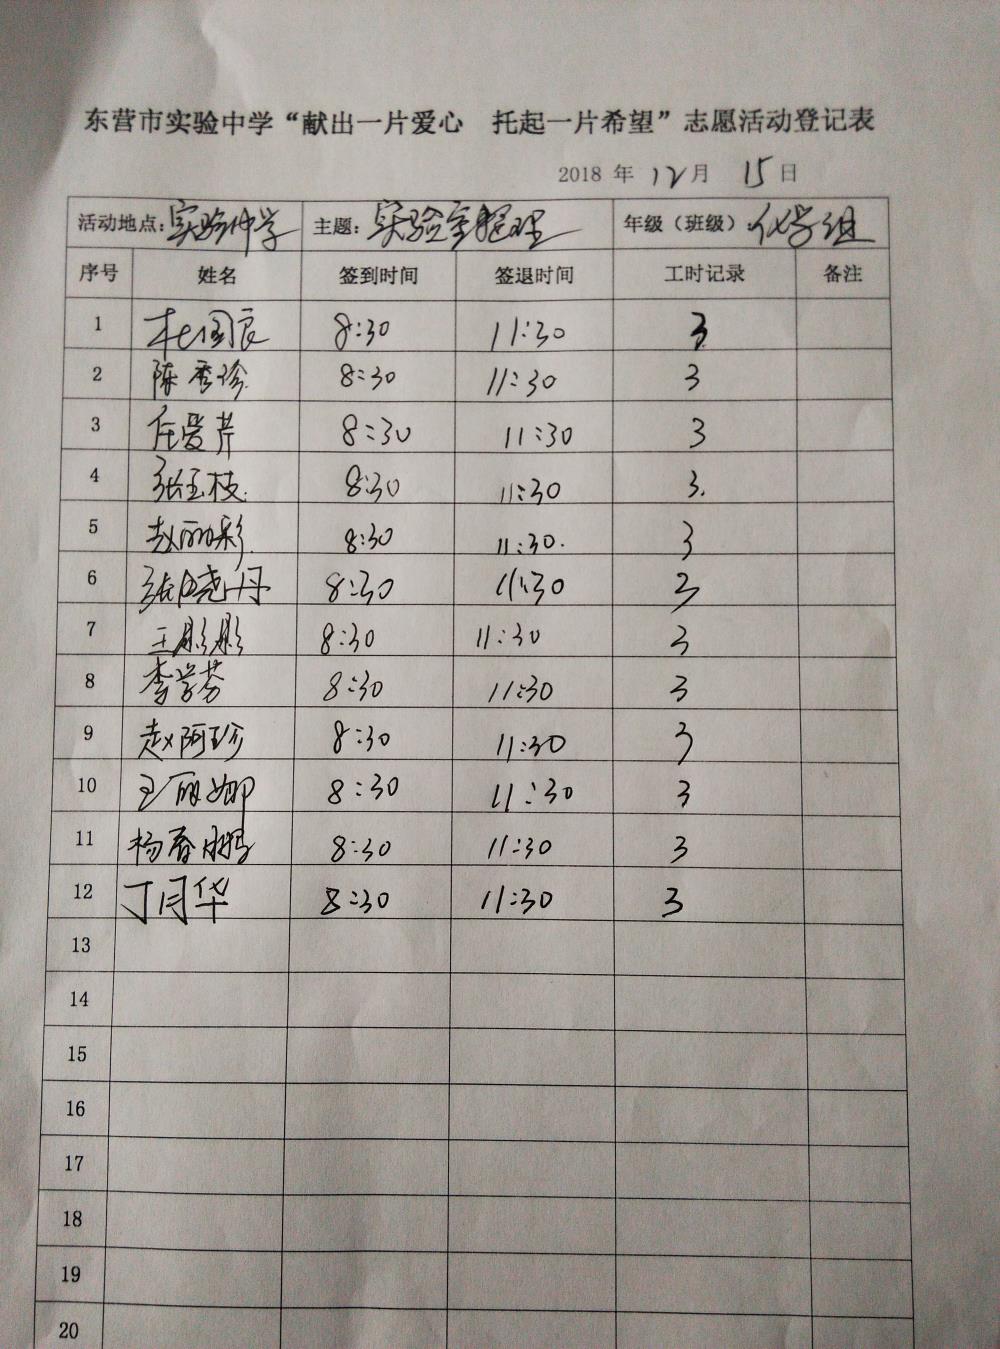 东营市实验中学“献出一片爱心 托起一片希望”志愿活动登记表
2018 年 12 月 15 日
活动地点：实验中学 主题：实验室整理 年级（班级）化学组
序号 姓名 签到时间 签退时间 工时记录 备注
1 杜国良 8:30 11:30 3
2 陈秀珍 8:30 11:30 3
3 任爱芹 8:30 11:30 3
4 张玉枝 8:30 11:30 3.
5 赵丽彩 8:30 11:30. 3
6 张晓丹 8:30 11:30 3
7 王彤彤 8:30 11:30 3
8 李学芬 8:30 11:30 3
9 赵阿珍 8:30 11:30 3
10 王丽娜 8:30 11:30 3
11 杨春鹏 8:30 11:30 3
12 丁月华 8:30 11:30 3
13
14
15
16
17
18
19
20